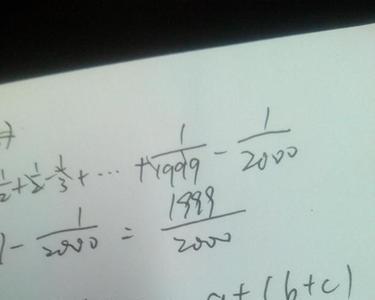 1/2 + 1/2 - 1/3 + ... + 1/1999 - 1/2000
1 - 1/2000 = 1999/2000
a + (b+c)